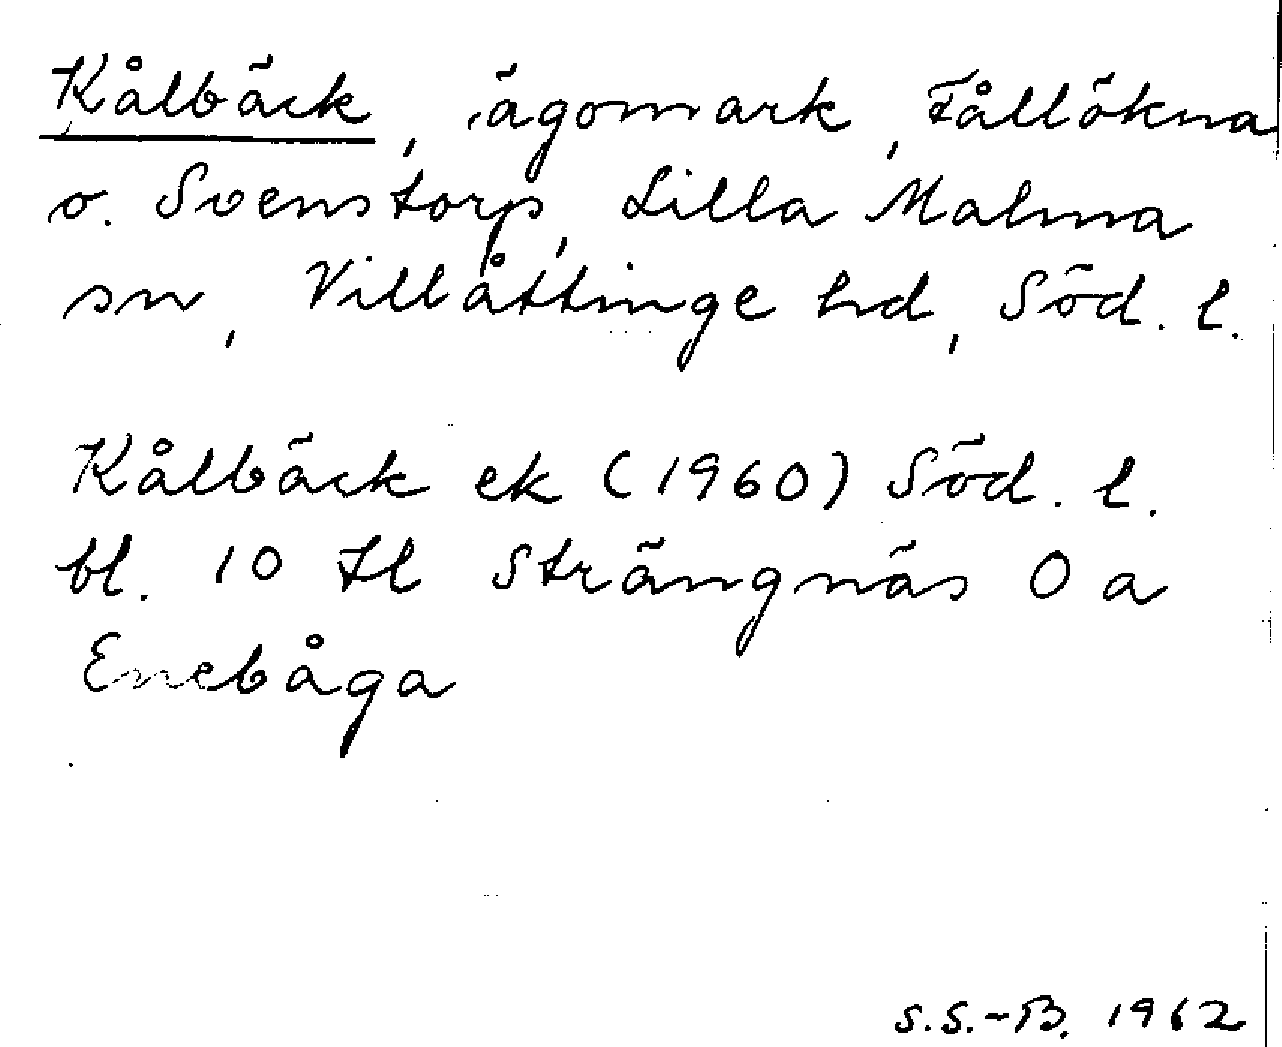 Kålbäck, ägomark, Fållökna
o. Svenstorp, Lilla Malma
sn, Villåttinge hd, Söd. l.
Kålbäck ek (1960) Söd. l.
bl. 10 tl Strängnäs O a
Enebåga
S.S.-B. 1962